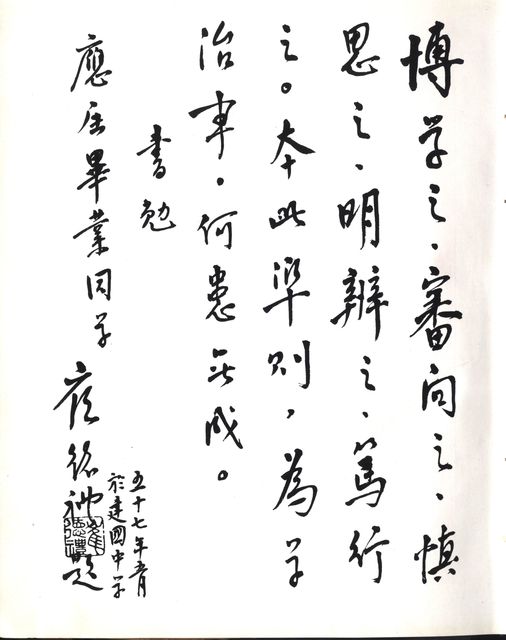 博学之、審问之、慎
思之、明辨之、篤行
之。本此準则，為学
治事。何患无成。
書勉
應屆畢業同学
崔德礼題
五十七年五月
於建国中学